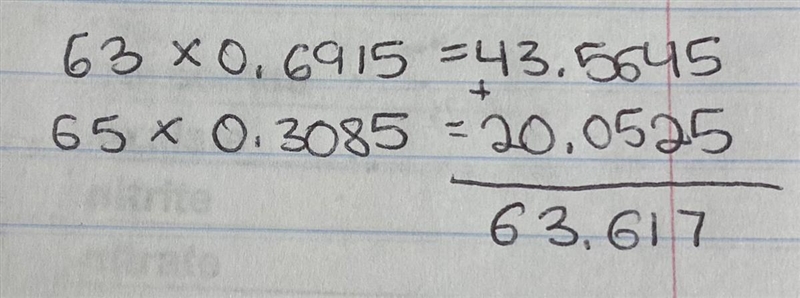 63 × 0.6915 = 43.5645
+
65 × 0.3085 = 20.0525
63.617
nitrite
nitrate